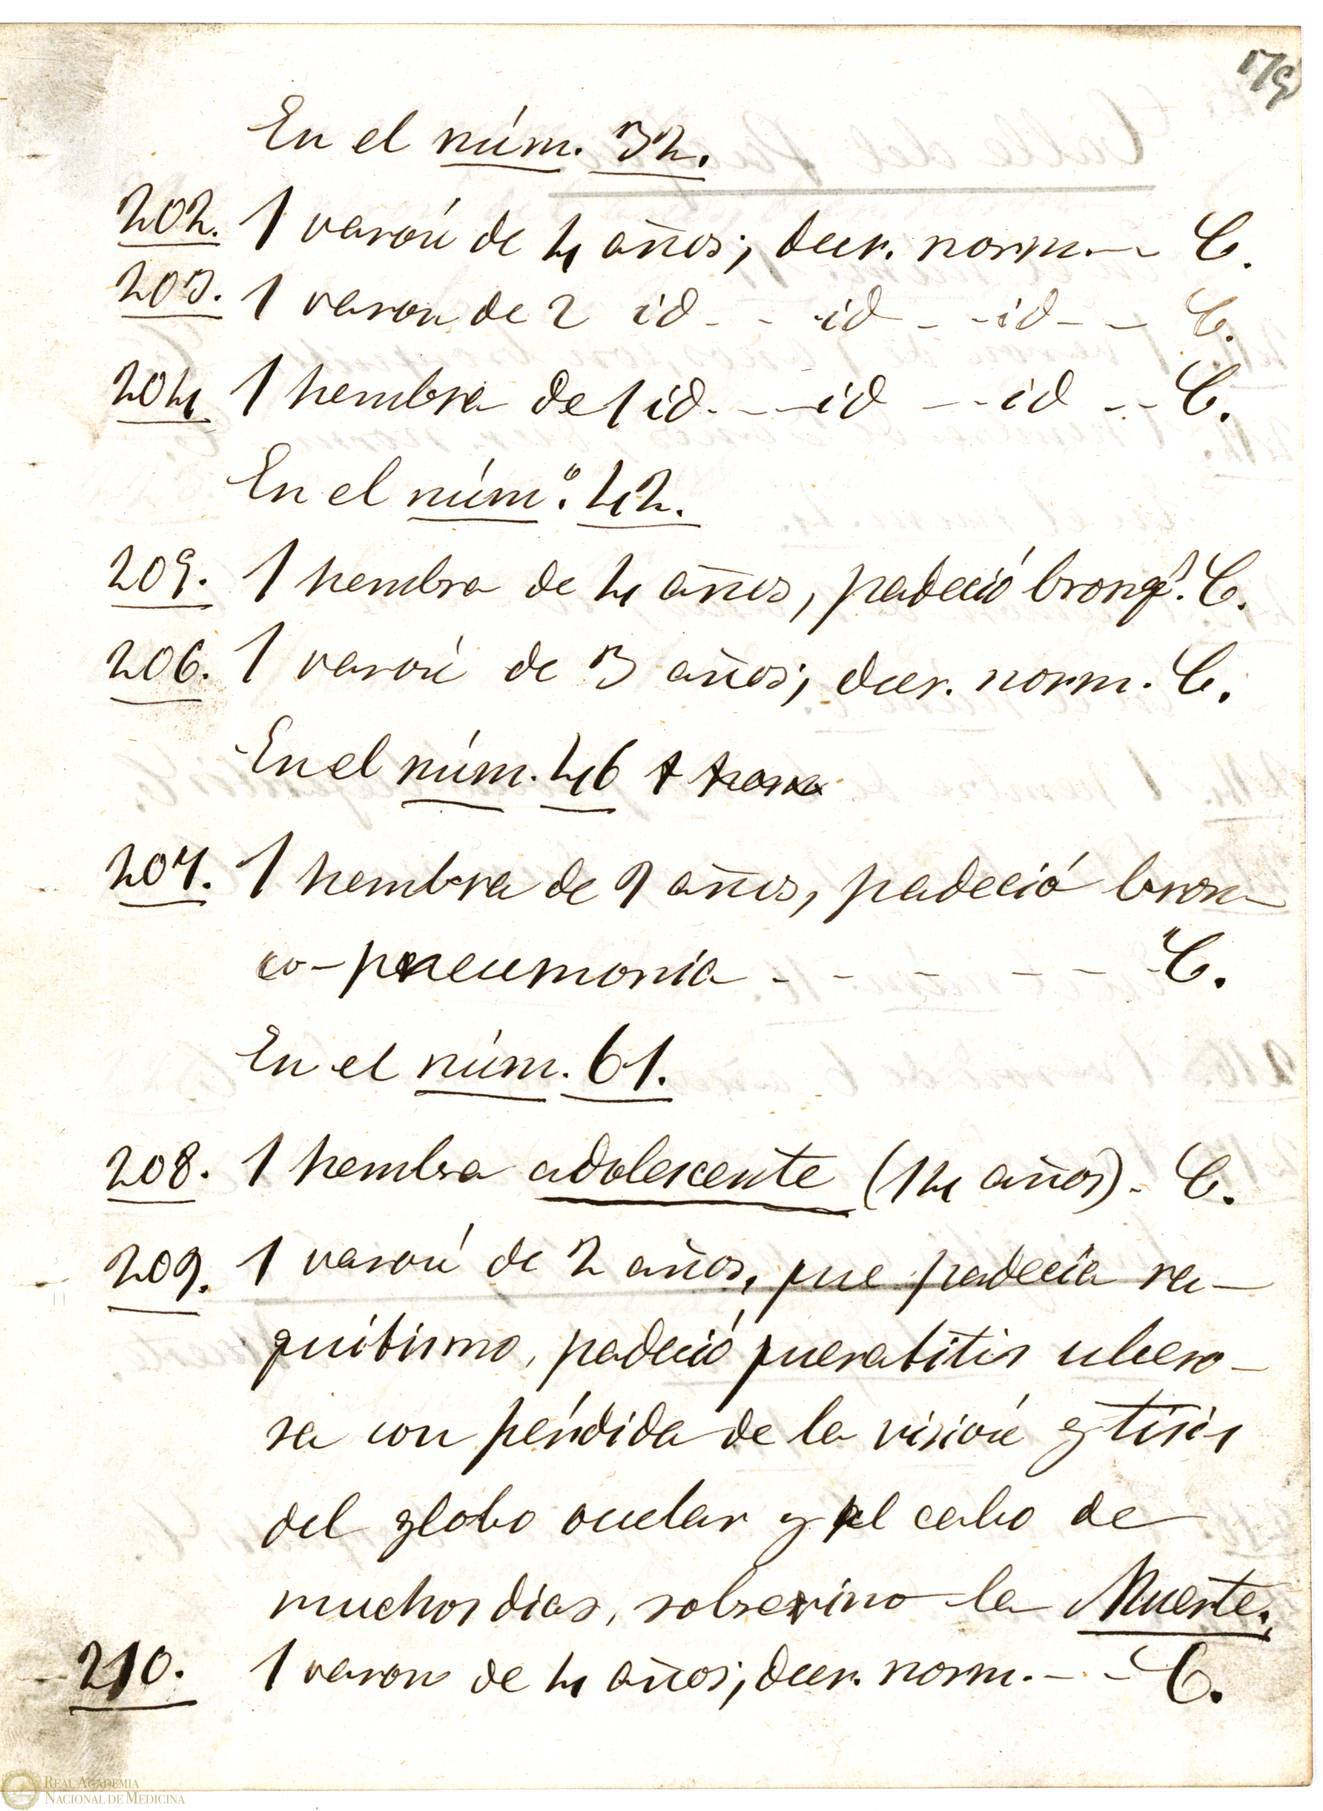 179
En el núm. 32.
202. 1 varón de 4 años; decr. norm. - C.
203. 1 varon de 2 id - - id - - id - - C.
204 1 hembra de 1 id. - - id - - id - - C.
En el núm.º 42.
205. 1 hembra de 4 años, padeció bronq.ˢ C.
206. 1 varón de 3 años; decr. norm. C.
En el núm. 46
207. 1 hembra de 9 años, padeció bron-
co-pneumonia - - - - - C.
En el núm. 61.
208. 1 hembra adolescente (14 años). C.
209. 1 varón de 2 años, que padecía ra-
quitismo, padeció queratitis ulcero-
sa con pérdida de la visión y tisis
del globo ocular y al cabo de
muchos dias, sobrevino la Muerte.
210. 1 varon de 4 años; decr. norm. - - C.
REAL ACADEMIA
NACIONAL DE MEDICINA